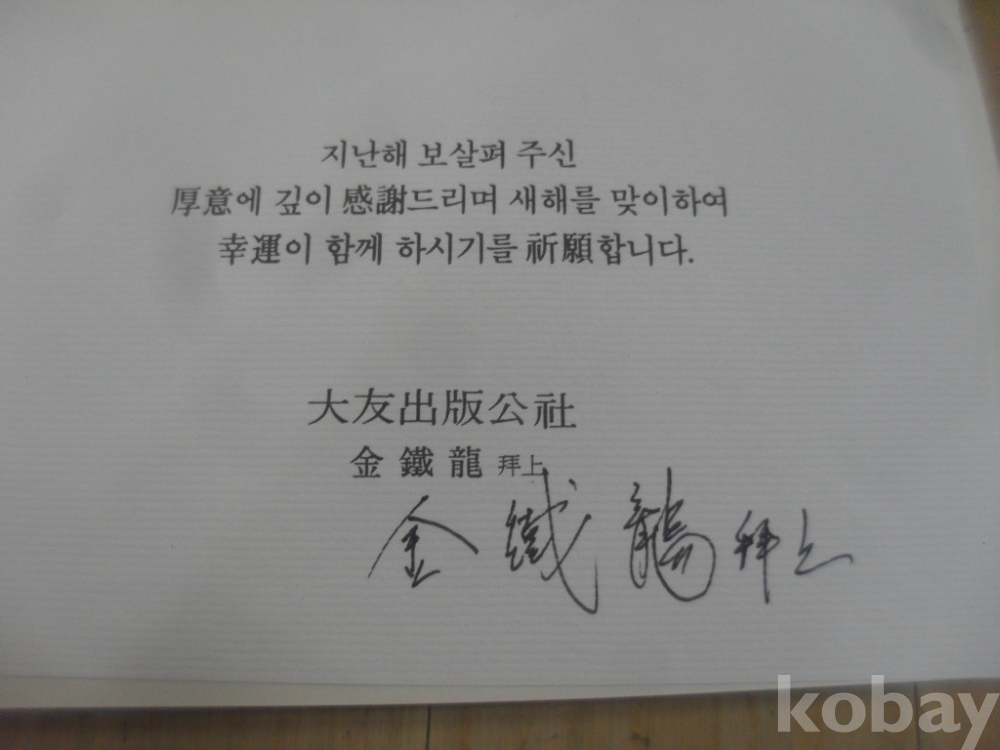 지난해 보살펴 주신
厚意에 깊이 感謝드리며 새해를 맞이하여
幸運이 함께 하시기를 祈願합니다.
大友出版公社
金鐵龍 拜上
金鐵龍 拜上
kobay